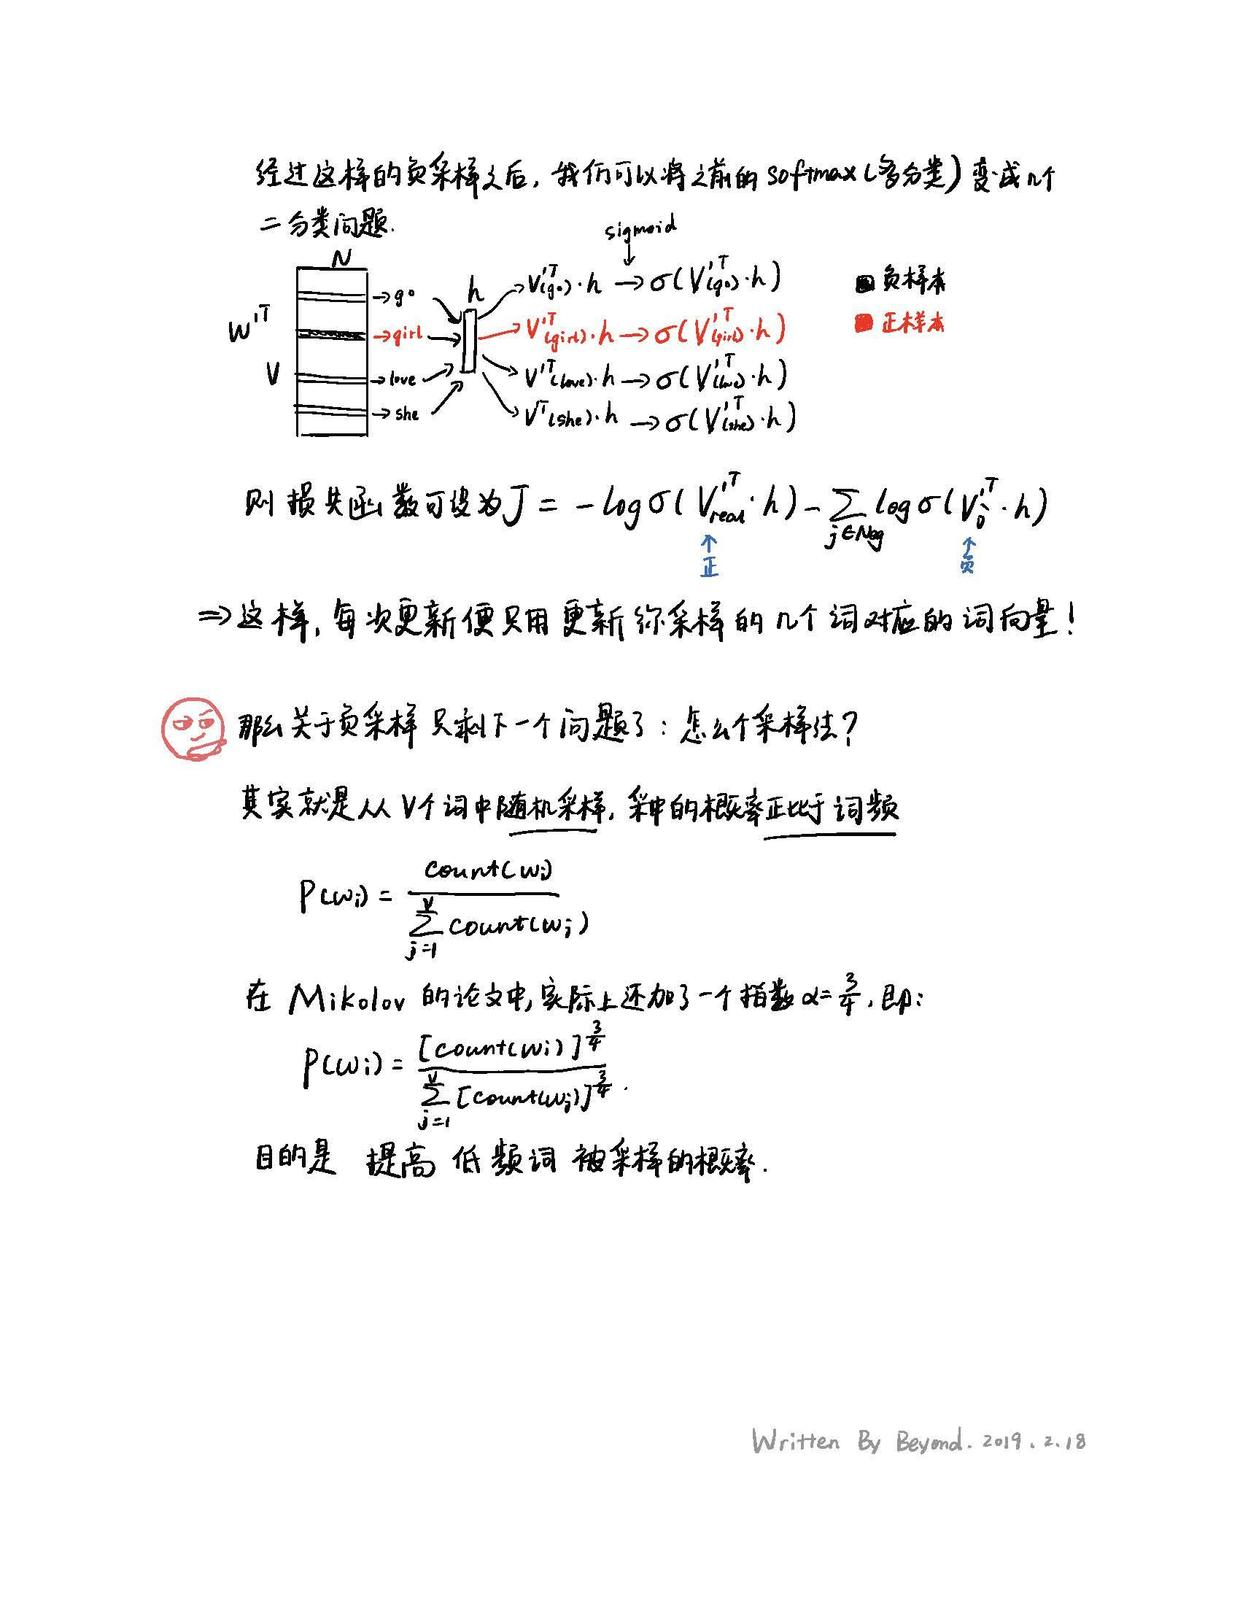 经过这样的负采样之后，我们可以将之前的softmax(多分类)变成几个
二分类问题.
sigmoid
N
W'ᵀ
V
→go
→girl
→love
→she
h
V'ᵀ(go)·h → σ(V'ᵀ(go)·h)
V'ᵀ(girl)·h → σ(V'ᵀ(girl)·h)
V'ᵀ(love)·h → σ(V'ᵀ(love)·h)
Vᵀ(she)·h → σ(V'ᵀ(she)·h)
负样本
正样本
则损失函数可设为 J = -logσ(V'ᵀreal·h) - ∑j∈Neg logσ(V'ᵀj·h)
↑ 正
↑ 负
⇒这样，每次更新便只用更新你采样的几个词对应的词向量！
那么关于负采样只剩下一个问题了：怎么个采样法？
其实就是从V个词中随机采样，采中的概率正比于词频
P(wi) = count(wi) / ∑j=1^V count(wj)
在 Mikolov 的论文中，实际上还加了一个指数α=3/4，即：
P(wi) = [count(wi)]^3/4 / ∑j=1^V [count(wj)]^3/4.
目的是 提高 低频词 被采样的概率.
Written By Beyond. 2019.2.18